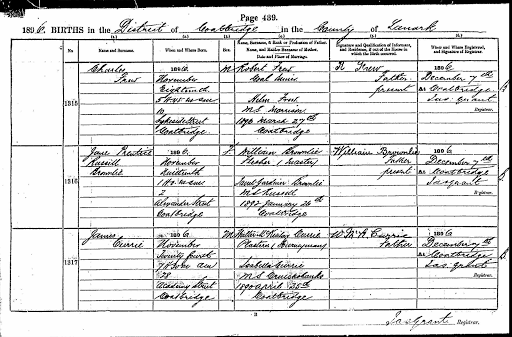 Page 439.
1896. BIRTHS in the District of Coatbridge in the County of Lanark
No.
Name and Surname.
When and Where Born.
Sex.
Name, Surname, & Rank or Profession of Father.
Name, and Maiden Surname of Mother.
Date and Place of Marriage.
Signature and Qualification of Informant, and Residence, if out of the House in which the Birth occurred.
When and Where Registered, and Signature of Registrar.
1315
Charles
Frew
1896.
November
Eighteenth
Coatbridge
M
Robert Frew
Coal Miner
Helen Frew
M.S. Morrison
March 27th
Coatbridge
R Frew
Father
present
1896
December 7th
At Coatbridge
Jas. Grant
Registrar.
1316
Jane
Russell
Brownlie
1896.
November
2
Alexander Street
Coatbridge
F.
William Brownlie
Janet Gardner Brownlie
M.S. Russell
1892 January 26th
Coatbridge
William Brownlie
Father
present
1896
December 7th
At Coatbridge
Jas. Grant
Registrar.
1317
James
Currie
1896.
November
Twenty fourth
28
Academy Street
Coatbridge
M
Currie
Plasterer (Journeyman)
Isabella Currie
M.S. Cruickshanks
April 25th
Coatbridge
Currie
Father
1896
December 7th
At Coatbridge
Jas. Grant
Registrar.
Jas. Grant Registrar.